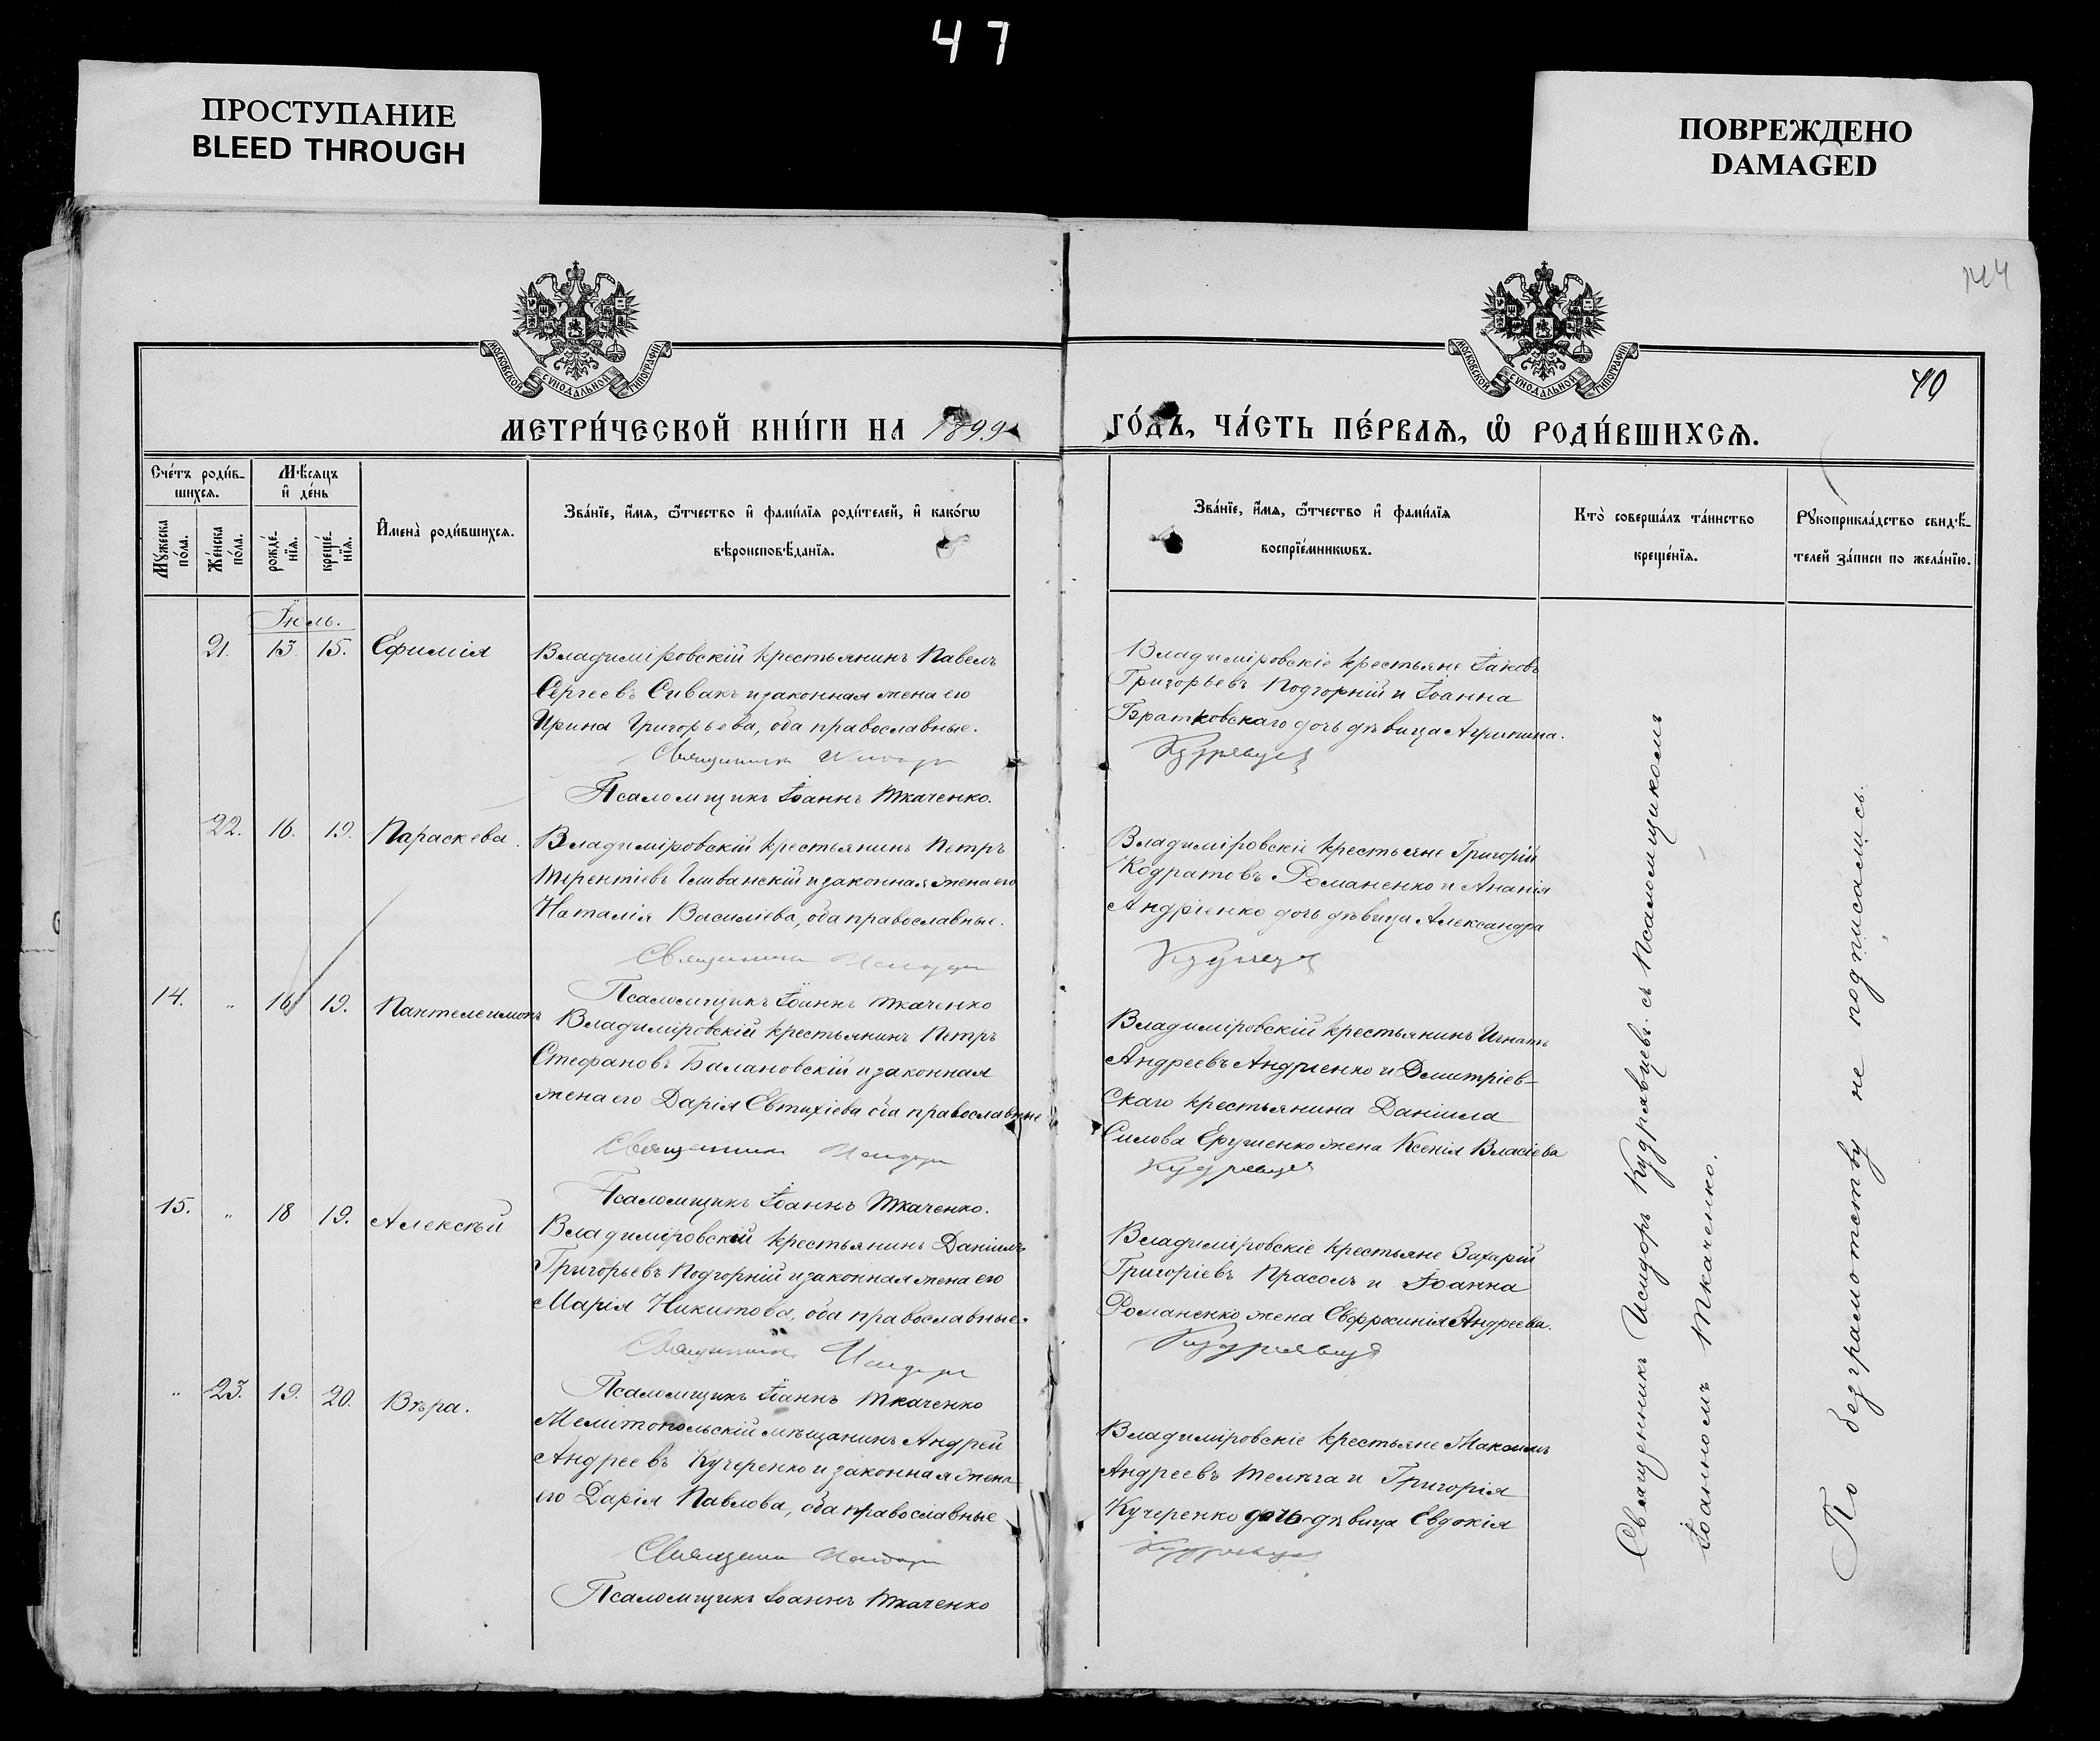 47
ПРОСТУПАНИЕ
BLEED THROUGH
ПОВРЕЖДЕНО
DAMAGED
144
МОСКОВСКОЙ СѴНОДАЛЬНОЙ ТИПОГРАФІИ
МОСКОВСКОЙ СѴНОДАЛЬНОЙ ТИПОГРАФІИ
40
МЕТРИ́ЧЕСКОЙ КНИ́ГИ НА 1899
ГО́ДЪ, ЧА́СТЬ ПЕ́РВАѦ, Ѡ҆ РОДИ́ВШИХСѦ.
Сче́тъ роди́в-
шихсѧ.
Мꙋ́жеска по́ла.
Же́нска по́ла.
Мѣ́сѧцъ
и҆ де́нь
рожде́-
нїѧ.
креще́-
нїѧ.
И҆мена̀ роди́вшихсѧ.
Зва́нїе, и҆́мѧ, ѻ҆́тчество и҆ фами́лїѧ роди́телей, и҆ како́гѡ
вѣроисповѣ́данїѧ.
Зва́нїе, и҆́мѧ, ѻ҆́тчество и҆ фами́лїѧ
воспрїе́мникѡвъ.
Кто̀ соверша́лъ та́инство
креще́нїѧ.
Рꙋкоприкла́дство свидѣ́-
телей за́писи по жела́нїю.
Іюль.
21. 13 15. Ефимія
Владиміровскій крестьянинъ Павелъ
Сергеевъ Сивакъ и законная жена его
Ирина Григорьева, оба православные.
Священникъ
Псаломщикъ Іоаннъ Ткаченко.
Владиміровскіе крестьяне Іаковъ
Григорьевъ Подгорній и Іоанна
Братковскаго дочь дѣвица Агрипина.
Кудрявцевъ
22. 16. 19. Параскева.
Владиміровскій крестьянинъ Петръ
Терентіевъ и законная жена его
Наталія Василіева, оба православные.
Священникъ
Псаломщикъ Іоаннъ Ткаченко
Владиміровскіе крестьяне Григорій
Кодратовъ Романенко и Ананія
Андріенко дочь дѣвица Александра
14. " 16 19. Пантелеимонъ
Владиміровскій крестьянинъ Петръ
Стефановъ Балановскій и законная
жена его Дарія Евтихіева оба православные
Священникъ
Псаломщикъ Іоаннъ Ткаченко.
Владиміровскій крестьянинъ Игнатъ
Андреевъ Андріенко и Дмитріев-
скаго крестьянина Даніила
Силова жена Ксенія Власіева
Кудрявцевъ
15. " 18 19. Алексѣй
Владиміровскій крестьянинъ Даніилъ
Григорьевъ Подгорній и законная жена его
Марія Никитова, оба православные.
Священникъ Исидоръ
Псаломщикъ Іоаннъ Ткаченко
Владиміровскіе крестьяне Захарій
Григоріевъ Прасолъ и Іоанна
Романенко жена Евфросинія Андреева.
Кудрявцевъ
" 23. 19. 20. Вѣра.
Мелитопольскій мѣщанинъ Андрей
Андреевъ Кучеренко и законная жена
его Дарія Павлова, оба православные
Священникъ Исидоръ
Псаломщикъ Іоаннъ Ткаченко
Владиміровскіе крестьяне Максимъ
Андреевъ Телѣга и Григорія
Кучеренко дочь дѣвица Евдокія
Кудрявцевъ
Священникъ Исидоръ Кудрявцевъ съ Псаломщикомъ
Іоанномъ Ткаченко.
По безграмотству не подписались.